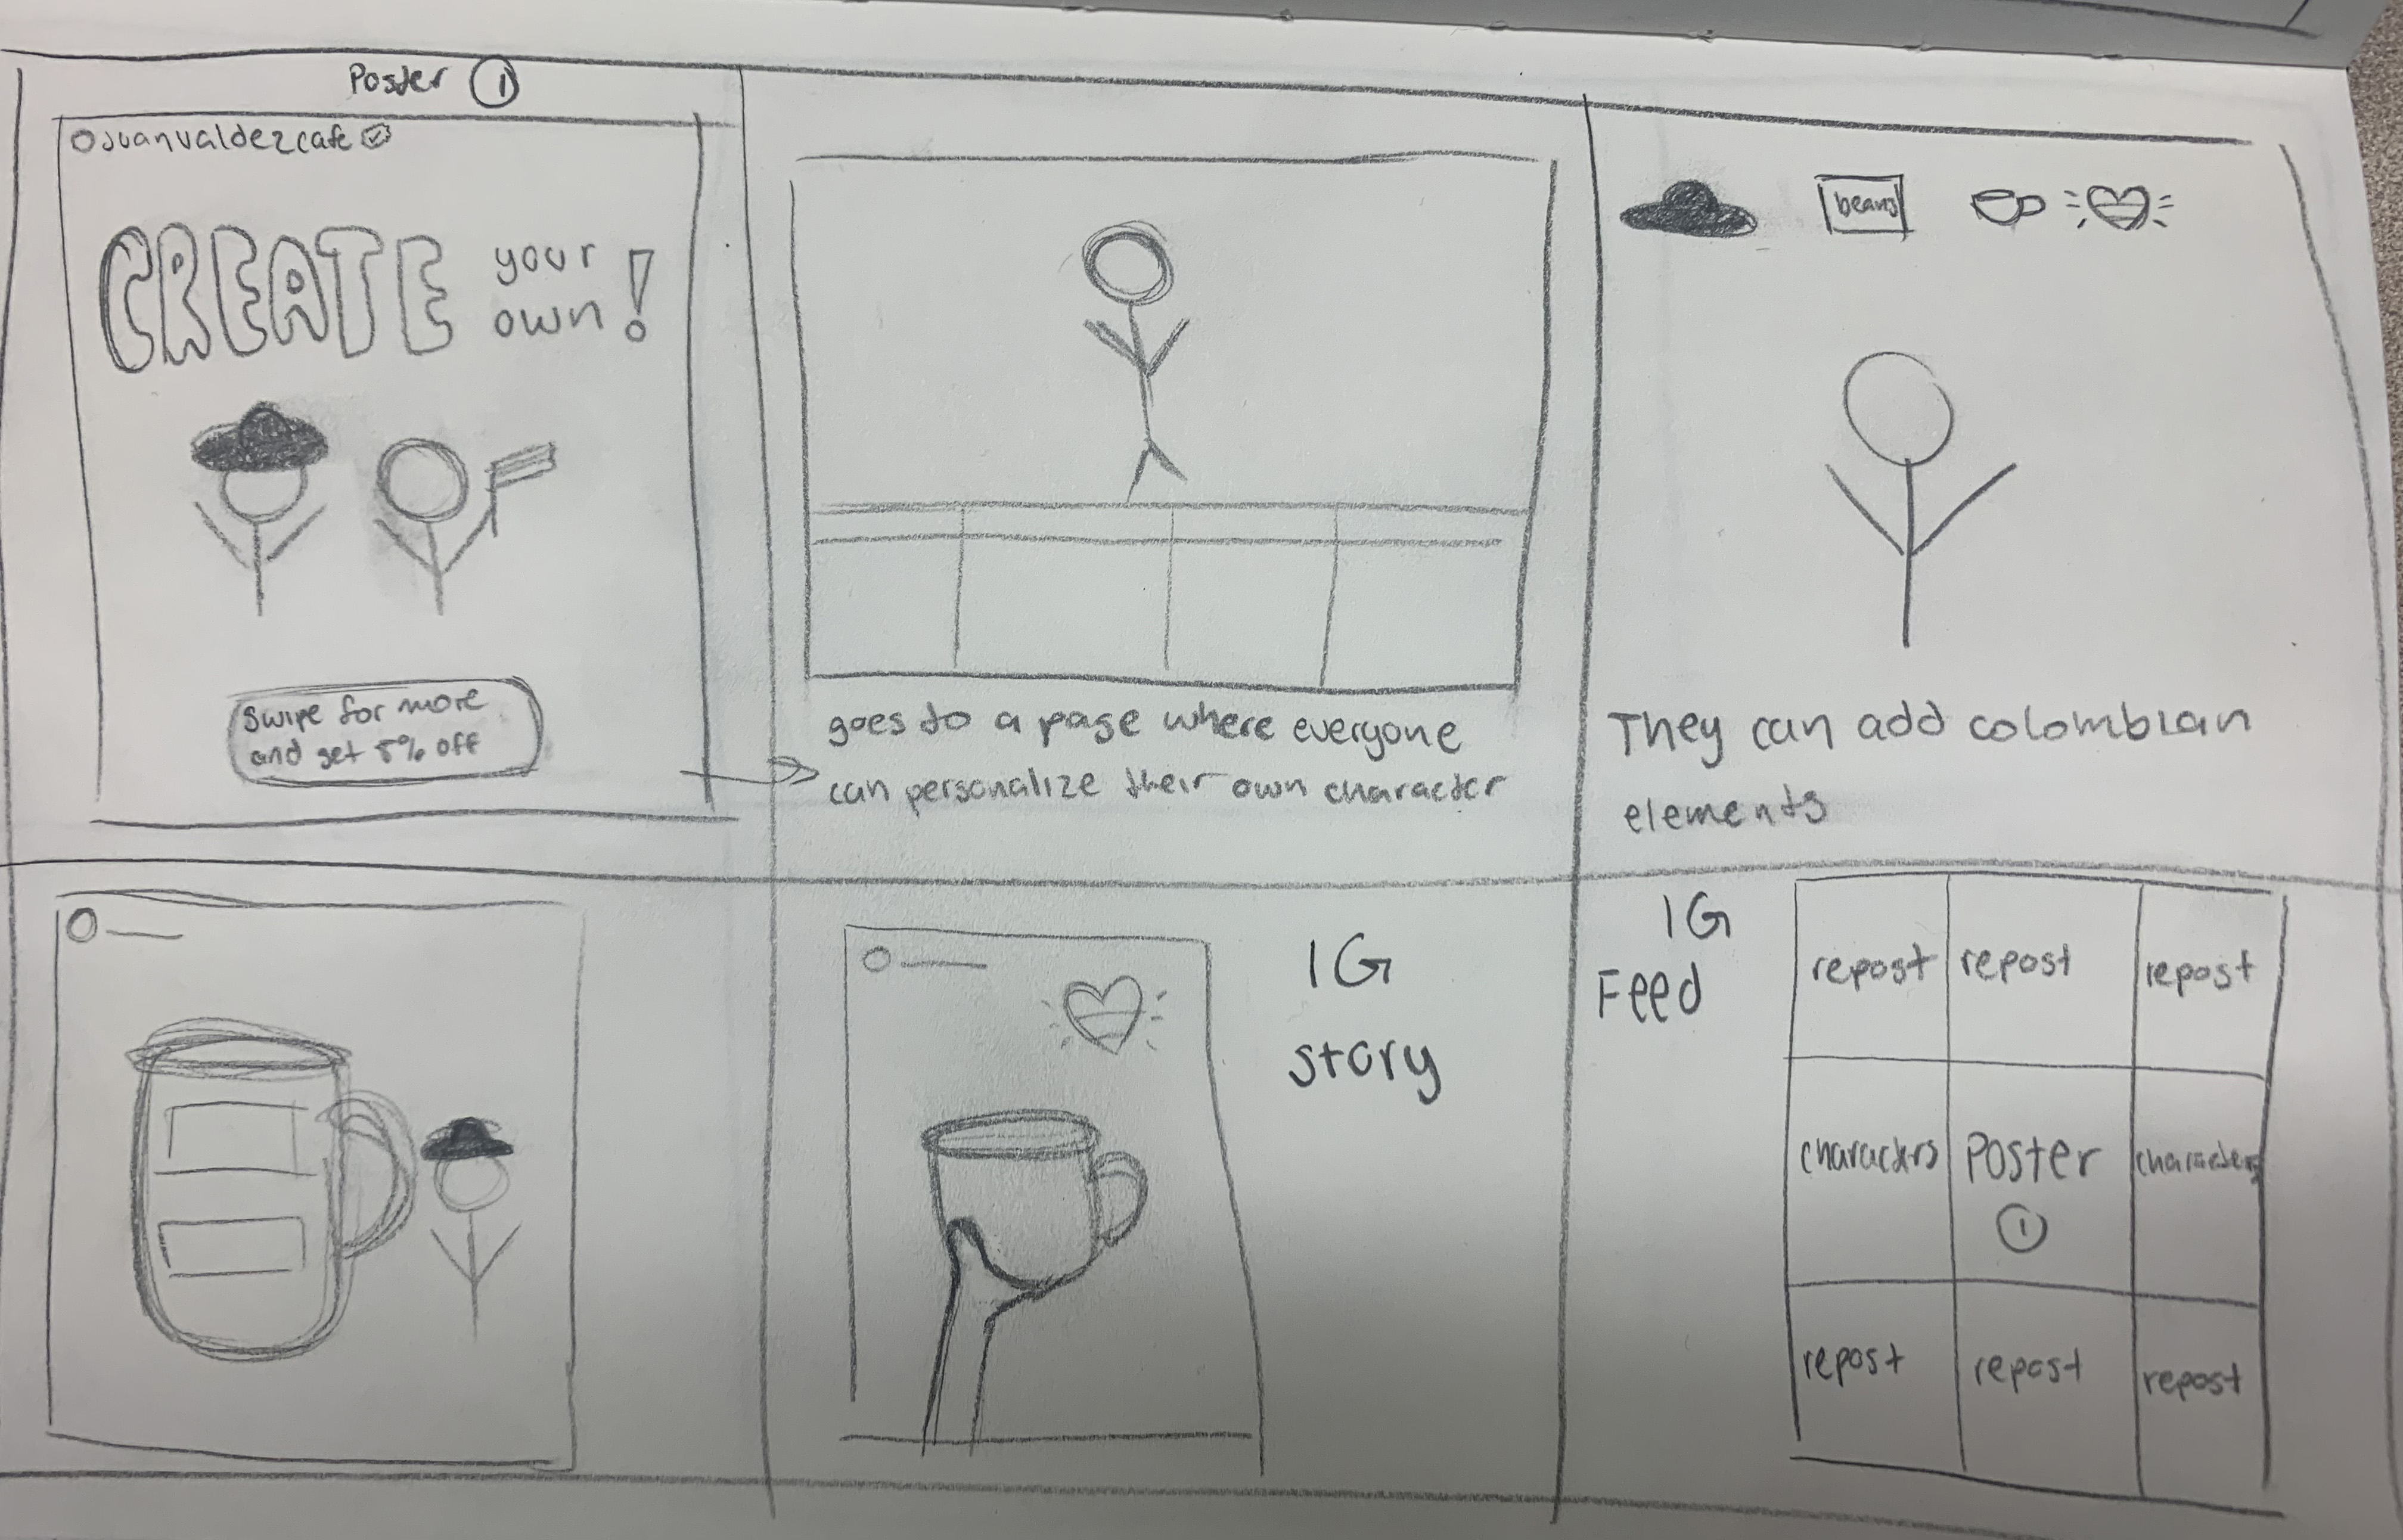 Poster 1
juanvaldezcafe
CREATE your own!
Swipe for more
and get 5% off
goes to a page where everyone
can personalize their own character
beans
They can add colombian
elements
IG
story
IG
Feed
repost repost repost
characters POSTER characters
1
repost repost repost